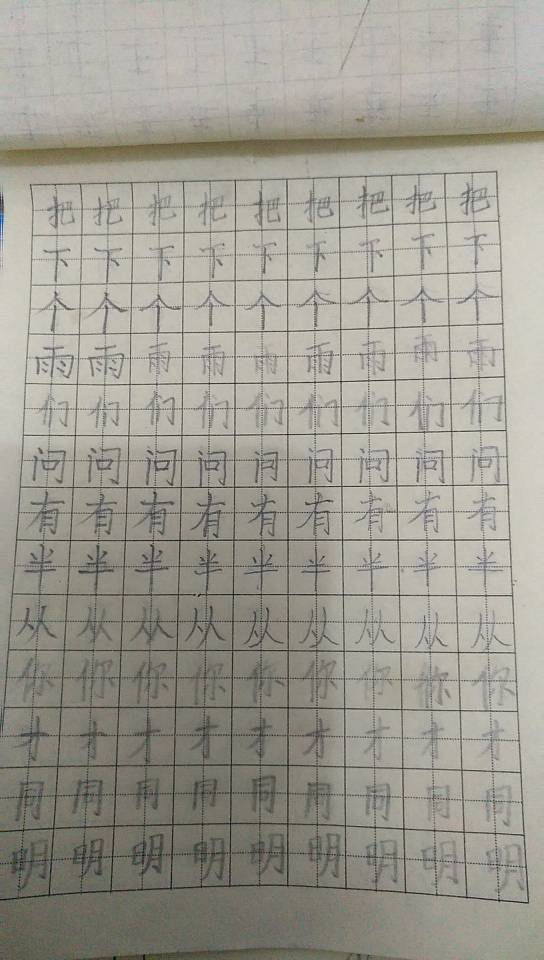 把把把把把把把把把
下下下下下下下下下
个个个个个个个个个
雨雨雨雨雨雨雨雨雨
们们们们们们们们们
问问问问问问问问问
有有有有有有有有有
半半半半半半半半半
从从从从从从从从从
你你你你你你你你你
才才才才才才才才才
同同同同同同同同同
明明明明明明明明明